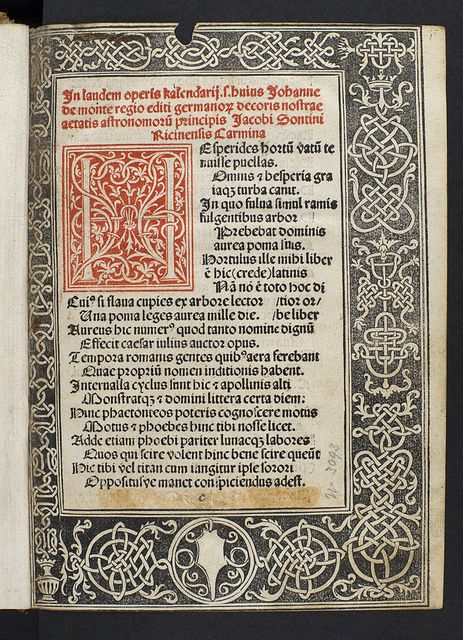 In laudem operis kalendarij .s. huius Johanne
de monte regio editi germanoꝝ decoris nostrae
aetatis astronomorū principis Jacobi Sontini
Ricinensis Carmina
HEsperides hortū vatū te
nuisse puellas.
Omnis ⁊ hesperia gra
iaqꝫ turba canit.
In quo fulua simul ramis
fulgentibus arbor
Prebebat dominis
aurea poma suis.
Hortulus ille mihi liber
ē hic (crede) latinis
Nā nō ē toto hoc di
Cuiꝰ si flaua cupies ex arbore lector /tior or/
Una poma leges aurea mille die. /be liber
Aureus hic numerꝰ quod tanto nomine dignū
Effecit caesar iulius auctor opus.
Tempora romanis gentes quibꝰ aera ferebant
Quae propriū nomen inditionis habent.
Interualla cyclus sunt hic ⁊ apollinis alti
Monstratqꝫ ⁊ domini littera certa diem:
Hinc phaetonteos poteris cognoscere motus
Motus ⁊ phoebes hinc tibi nosse licet.
Adde etiam phoebi pariter lunaeqꝫ labores
Quos qui scire volent hinc bene scire queūt
Hic tibi vel titan cum iangitur ipse sorori
Oppositusve manet conspiciendus adest.
c
3098